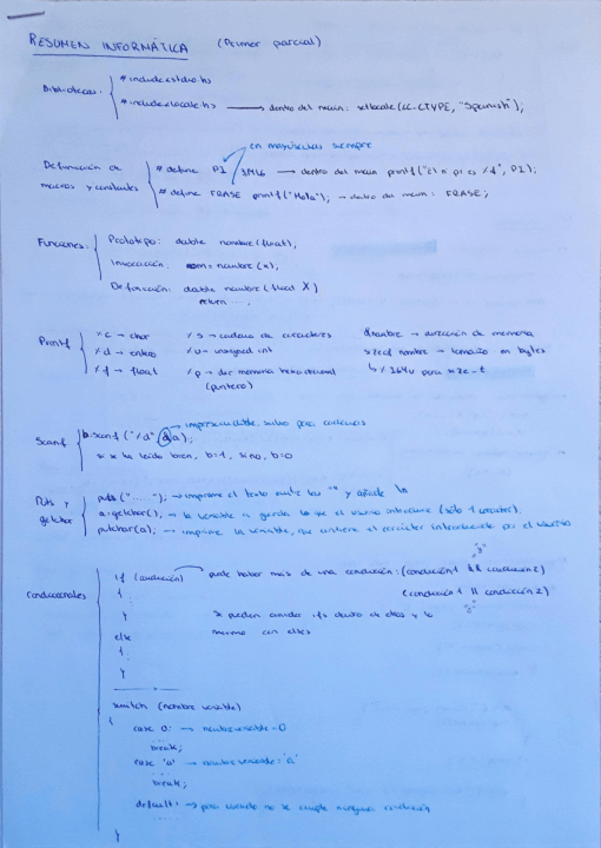 RESUMEN INFORMÁTICA (Primer parcial)
Bibliotecas:
#include<stdio.h>
#include<locale.h> → dentro del main: setlocale(LC_CTYPE, "Spanish");
en mayúsculas siempre
Definición de macros y constantes
# define PI 3.1416 → dentro del main printf("El nº pi es %f", PI);
# define FRASE printf("Hola"); → dentro del main: FRASE;
Funciones:
Prototipo: double nombre(float);
Invocación: nom=nombre(x);
Definición: double nombre(float X)
return ...;
Printf
%c → char %s → cadena de caracteres &nombre → dirección de memoria
%d → entero %u → unsigned int sizeof nombre → tamaño en bytes
%f → float %p → dir memoria hexadecimal ↳ %I64u para size_t
(puntero)
→ imprescindible, salvo para cadenas
Scanf
b=scanf("%d",&a);
si se ha leído bien, b=1, sino, b=0
Puts y getchar
puts("......"); → imprime el texto entre las "" y añade \n
a=getchar(); → la variable a guarda lo que el usuario introduce (sólo 1 carácter).
putchar(a); → imprime la variable, que contiene el carácter introducido por el usuario
"y"
Condicionales
if (condición) puede haber más de una condición: (condición1 && condición2)
{ (condición1 || condición2)
"o"
} se pueden anidar ifs dentro de otros y lo
else mismo con elses
{
}
switch (nombre variable)
{
case 0: → nombre variable=0
break;
case 'a' → nombre variable='a'
break;
default: → para cuando no se cumple ninguna condición
}